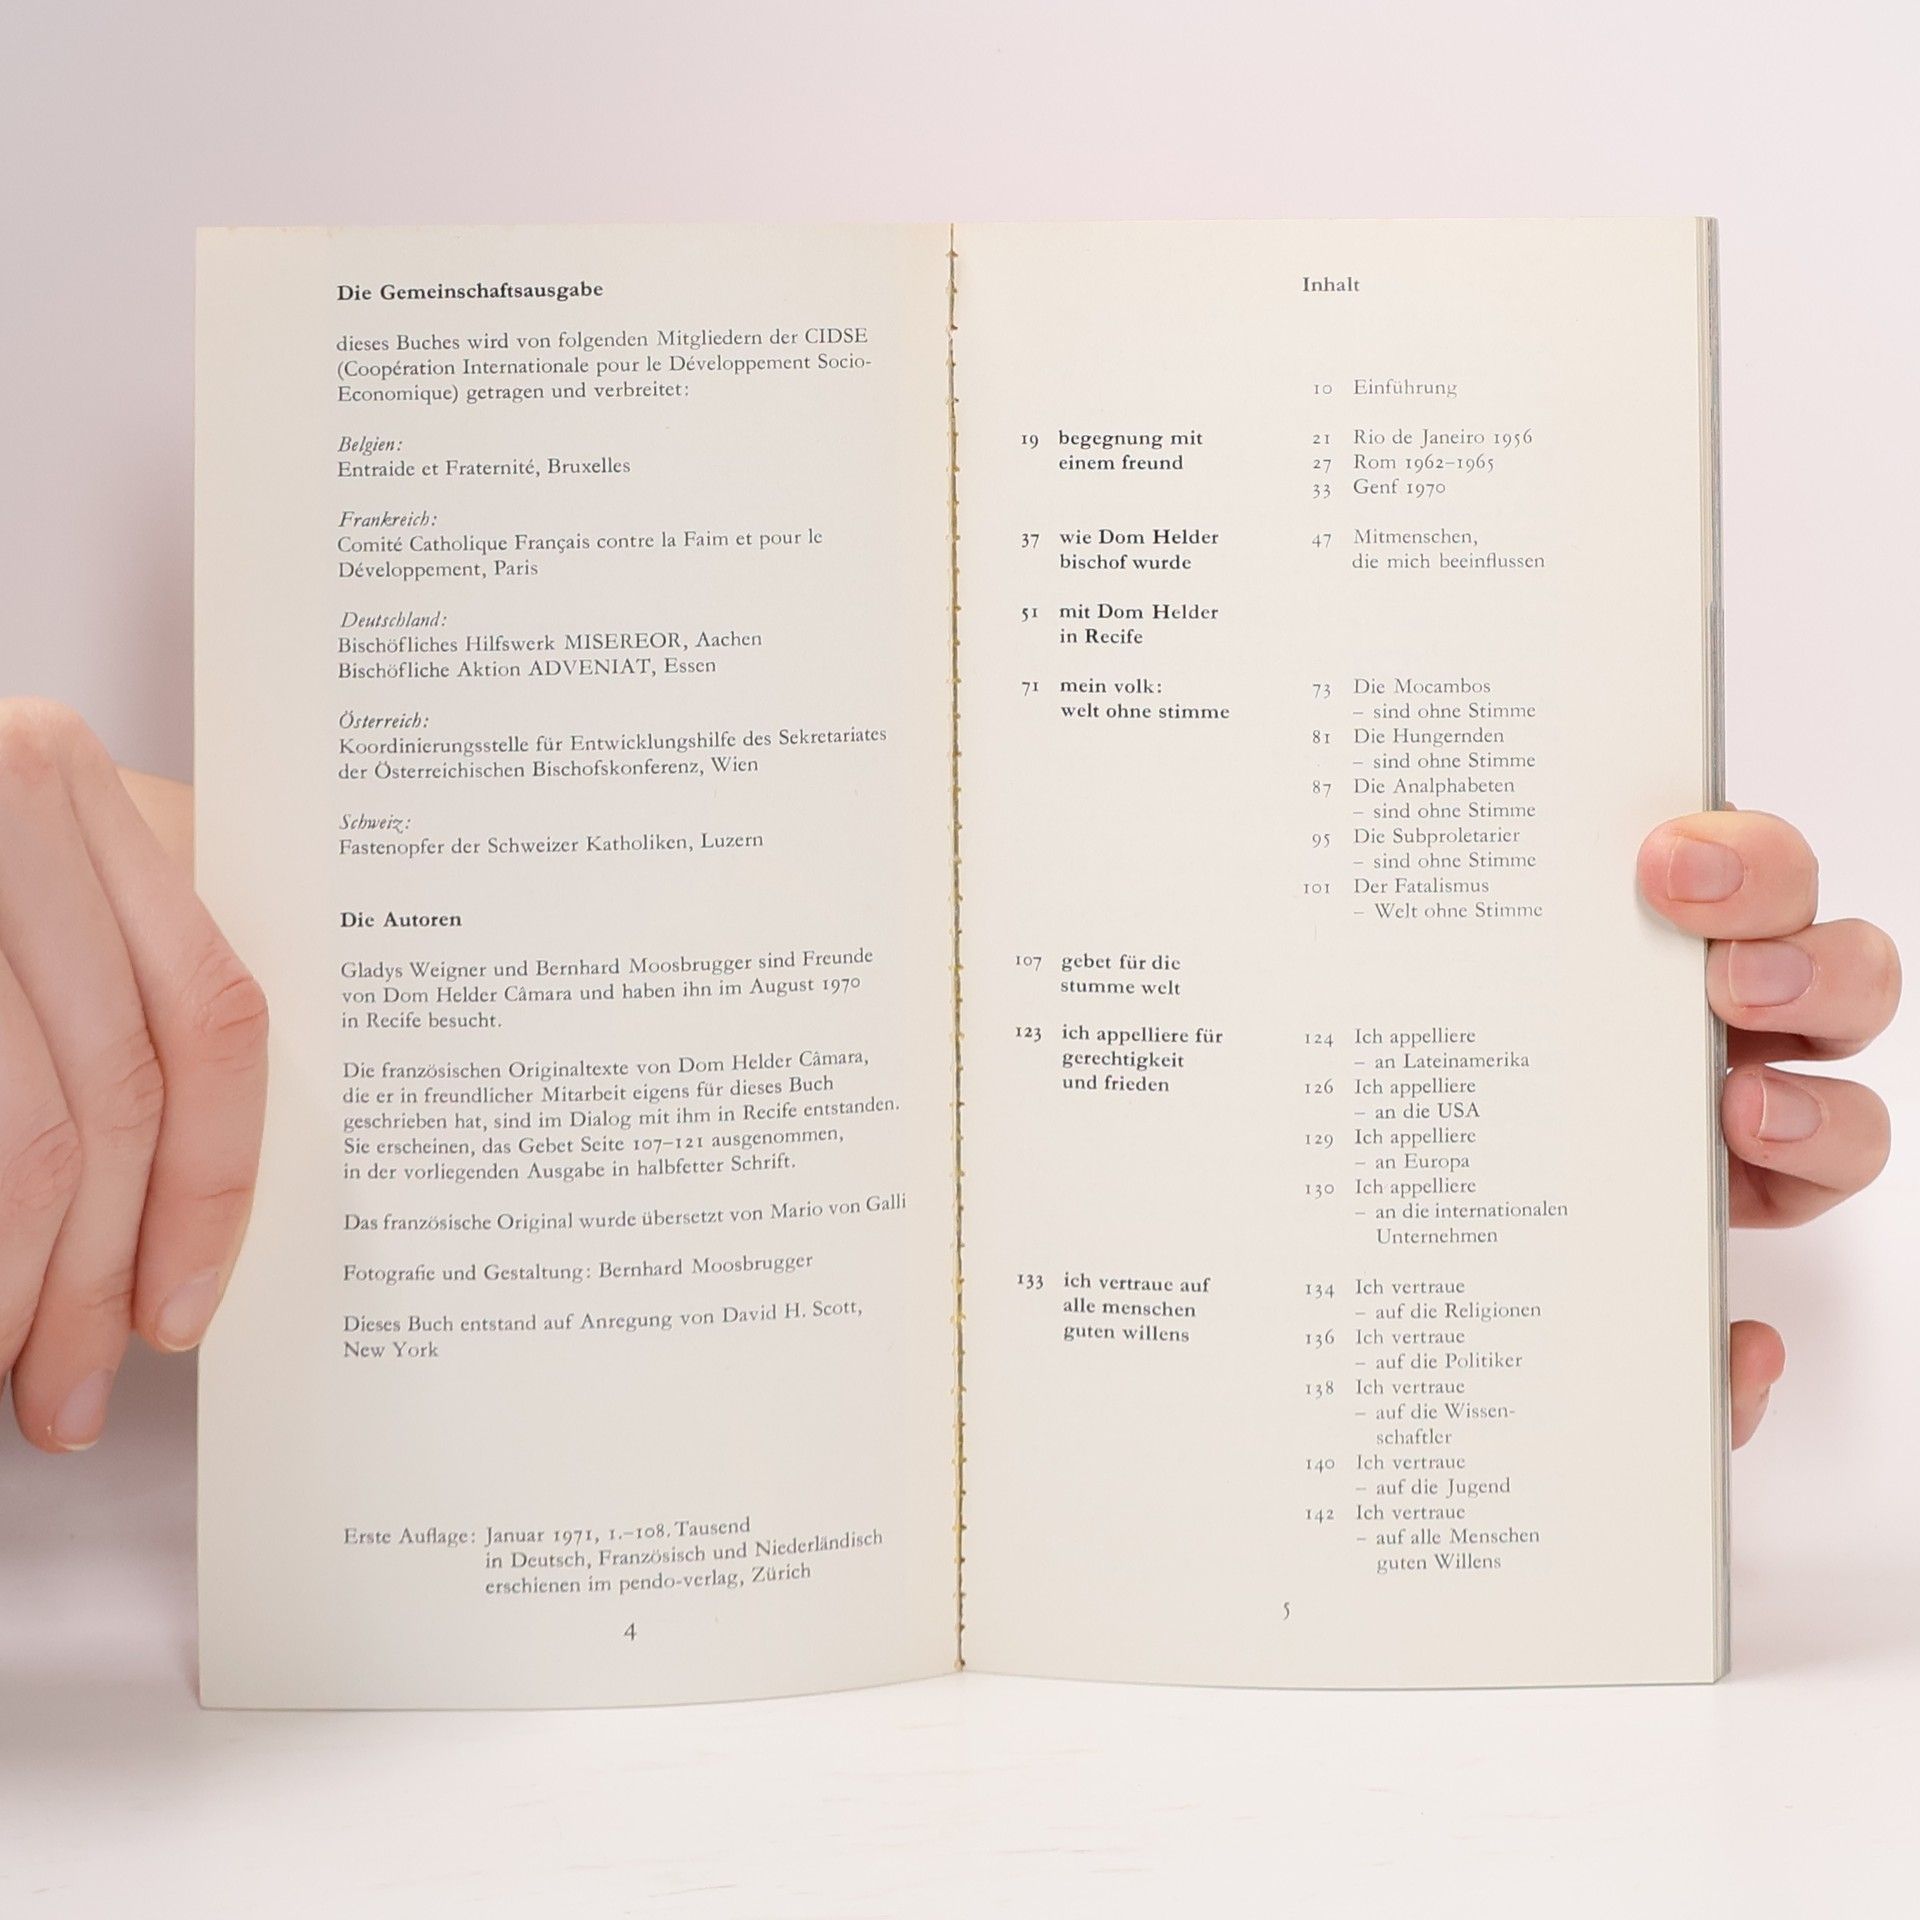 Die Gemeinschaftsausgabe
dieses Buches wird von folgenden Mitgliedern der CIDSE
(Coopération Internationale pour le Développement Socio-
Economique) getragen und verbreitet:
Belgien:
Entraide et Fraternité, Bruxelles
Frankreich:
Comité Catholique Français contre la Faim et pour le
Développement, Paris
Deutschland:
Bischöfliches Hilfswerk MISEREOR, Aachen
Bischöfliche Aktion ADVENIAT, Essen
Österreich:
Koordinierungsstelle für Entwicklungshilfe des Sekretariates
der Österreichischen Bischofskonferenz, Wien
Schweiz:
Fastenopfer der Schweizer Katholiken, Luzern
Die Autoren
Gladys Weigner und Bernhard Moosbrugger sind Freunde
von Dom Helder Câmara und haben ihn im August 1970
in Recife besucht.
Die französischen Originaltexte von Dom Helder Câmara,
die er in freundlicher Mitarbeit eigens für dieses Buch
geschrieben hat, sind im Dialog mit ihm in Recife entstanden.
Sie erscheinen, das Gebet Seite 107–121 ausgenommen,
in der vorliegenden Ausgabe in halbfetter Schrift.
Das französische Original wurde übersetzt von Mario von Galli
Fotografie und Gestaltung: Bernhard Moosbrugger
Dieses Buch entstand auf Anregung von David H. Scott,
New York
Erste Auflage: Januar 1971, 1.–108. Tausend
in Deutsch, Französisch und Niederländisch
erschienen im pendo-verlag, Zürich
4
Inhalt
10 Einführung
19 begegnung mit
einem freund
21 Rio de Janeiro 1956
27 Rom 1962–1965
33 Genf 1970
37 wie Dom Helder
bischof wurde
47 Mitmenschen,
die mich beeinflussen
51 mit Dom Helder
in Recife
71 mein volk:
welt ohne stimme
73 Die Mocambos
– sind ohne Stimme
81 Die Hungernden
– sind ohne Stimme
87 Die Analphabeten
– sind ohne Stimme
95 Die Subproletarier
– sind ohne Stimme
101 Der Fatalismus
– Welt ohne Stimme
107 gebet für die
stumme welt
123 ich appelliere für
gerechtigkeit
und frieden
124 Ich appelliere
– an Lateinamerika
126 Ich appelliere
– an die USA
129 Ich appelliere
– an Europa
130 Ich appelliere
– an die internationalen
Unternehmen
133 ich vertraue auf
alle menschen
guten willens
134 Ich vertraue
– auf die Religionen
136 Ich vertraue
– auf die Politiker
138 Ich vertraue
– auf die Wissen-
schaftler
140 Ich vertraue
– auf die Jugend
142 Ich vertraue
– auf alle Menschen
guten Willens
5